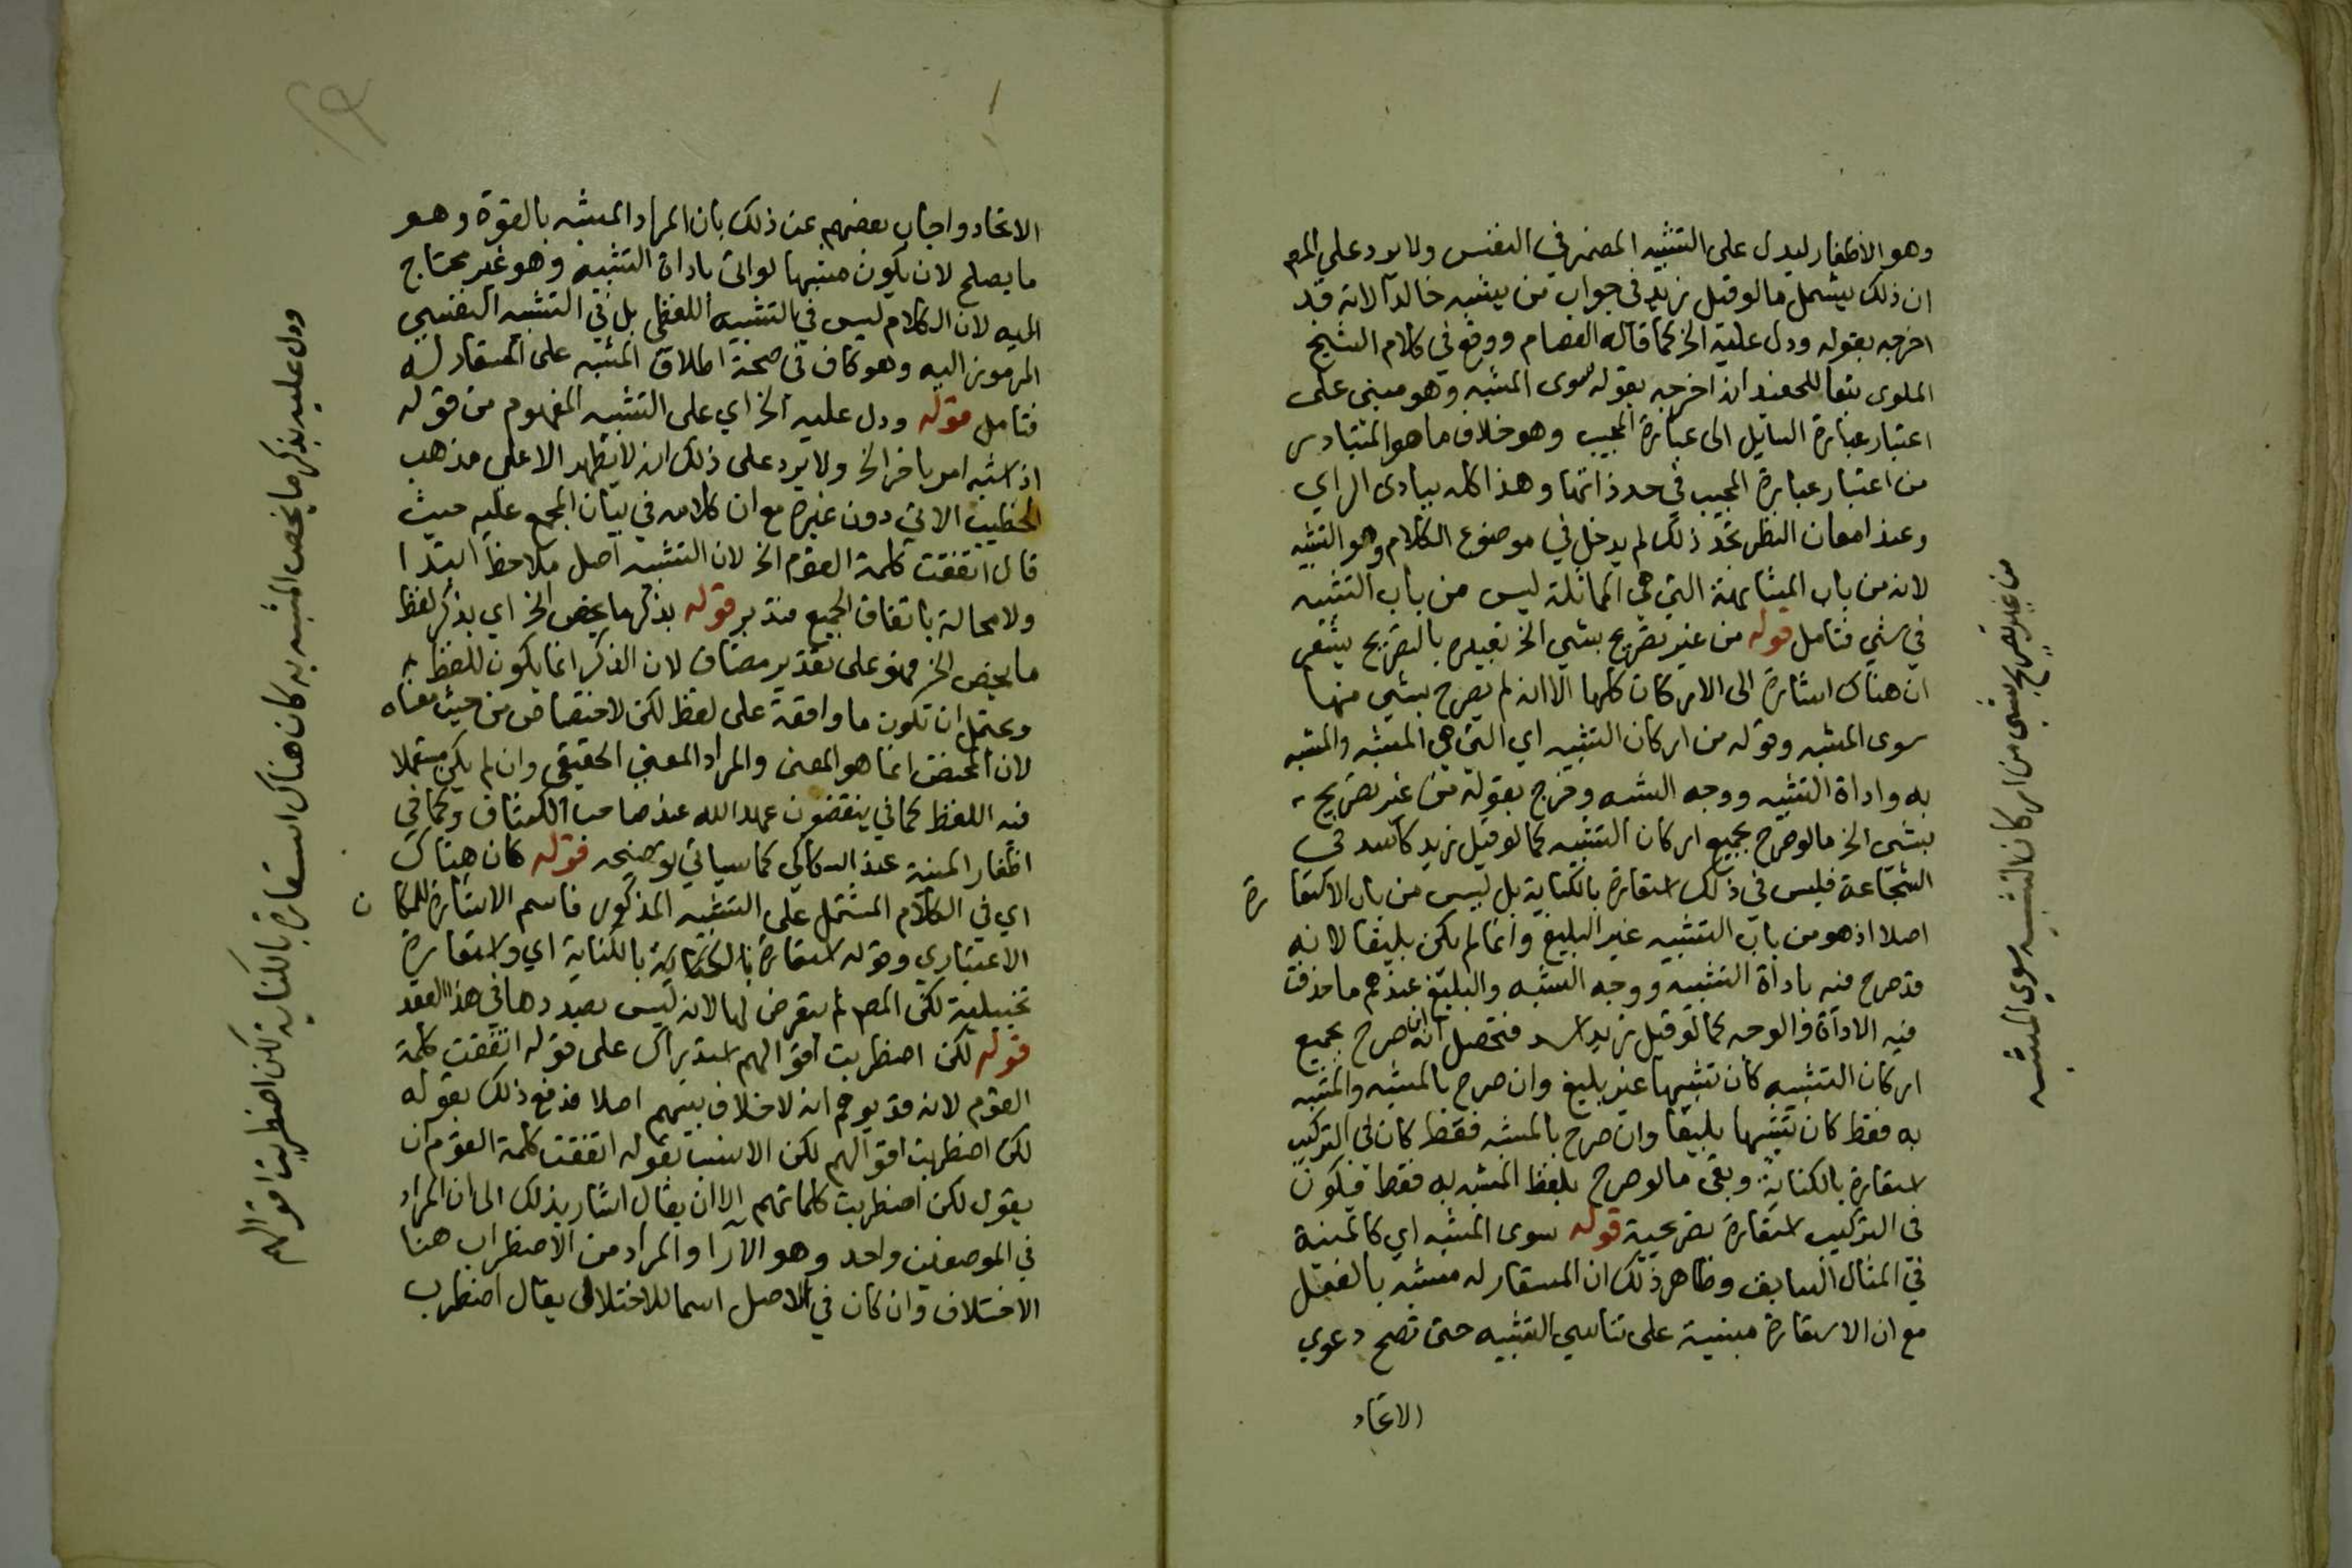 وهو الاظفار ليدل على التشبيه المضمر في النفس ولا يرد على المص
ان ذلك يشمل ما لو قيل زيد في جواب من يشبه خالدا لانه قد
اخرجه بقوله ودل عليه الخ كما قاله العصام ووقع في كلام الشيخ
الملوي تبعا للحفيد انه اخرجه بقوله سوى المشبه وهو مبني على
اعتبار عبارة السايل الى عبارة المجيب وهو خلاف ما هو المتبادر
من اعتبار عبارة المجيب في حد ذاتها وهذا كله ببادى الراي
وعند امعان النظر تجد ذلك لم يدخل في موضوع الكلام وهو التشبيه
لانه من باب المشابهة التي هي المماثلة ليس من باب التشبيه
في شي فتامل قوله من غير تصريح بشي الخ تعبيره بالتصريح يشعر
ان هناك اشارة الى الاركان كلها الا انه لم يصرح بشي منها
سوى المشبه وقوله من اركان التشبيه اي التي هي المشبه والمشبه
به واداة التشبيه ووجه الشبه وخرج بقوله من غير تصريح
بشي الخ ما لو صرح بجميع اركان التشبيه كما لو قيل زيد كالاسد في
الشجاعة فليس في ذلك استعارة بالكناية بل ليس من باب الاستعارة
اصلا اذ هو من باب التشبيه غير البليغ وانما لم يكن بليغا لانه
قد صرح فيه باداة التشبيه ووجه الشبه والبليغ عندهم ما حذفت
فيه الاداة والوجه كما لو قيل زيد اسد فتحصل انه ان صرح بجميع
اركان التشبيه كان تشبيها غير بليغ وان صرح بالمشبه والمشبه
به فقط كان تشبيها بليغا وان صرح بالمشبه فقط كان في التركيب
استعارة بالكناية وبقى ما لو صرح بلفظ المشبه به فقط فيكون
في التركيب استعارة تصريحية قوله سوى المشبه اي كالمنية
في المثال السابق وظاهر ذلك ان المستعار له مشبه بالفعل
مع ان الاستعارة مبنية على تناسي التشبيه حتى تصح دعوي
الاتحاد
من غير تصريح بشي من اركان التشبيه سوي المشبه
الاتحاد واجاب بعضهم عن ذلك بان المراد المشبه بالقوة وهو
ما يصلح لان يكون مشبها لو اتى باداة التشبيه وهو غير محتاج
اليه لان الكلام ليس في التشبيه اللفظي بل في التشبيه النفسي
المرموز اليه وهو كاف في صحة اطلاق المشبه على المستعار له
فتامل قوله ودل عليه الخ اي على التشبيه المفهوم من قوله
اذا شبه امر باخر الخ ولا يرد على ذلك انه لا يظهر الا على مذهب
الخطيب الاتي دون غيره مع ان كلامه في بيان المجمع عليه حيث
قال اتفقت كلمة القوم الخ لان التشبيه اصل ملاحظ ابتدا
ولا محالة باتفاق الجميع فتدبر قوله بذكر ما يخص الخ اي بذكر لفظ
ما يخص الخ فهو على تقدير مضاف لان الذكر انما يكون للفظ
ويحتمل ان تكون ما واقعة على لفظ لكن لا اختصاص من حيث معناه
لان المختص انما هو المعنى والمراد المعني الحقيقي وان لم يكن مستعملا
فيه اللفظ كما في ينقضون عهد الله عند صاحب الكشاف وكما في
اظفار المنية عند السكاكي كما سياتي توضيحه قوله كان هناك
اي في الكلام المشتمل على التشبيه المذكور فاسم الاشارة للمكان
الاعتباري وقوله استعارة بالكناية بالكناية اي واستعارة
تخييلية لكن المص لم يتعرض لها لانه ليس بصددها في هذا العقد
قوله لكن اضطربت اقوالهم استدراك على قوله اتفقت كلمة
القوم لانه قد يوهم انه لا خلاف بينهم اصلا فدفع ذلك بقوله
لكن اضطربت اقوالهم لكن الانسب بقوله اتفقت كلمة القوم ان
يقول لكن اضطربت كلماتهم الا ان يقال اشار بذلك الى ان المراد
في الموضعين واحد وهو الآرا والمراد من الاضطراب هنا
الاختلاف وان كان في الاصل اسما للاختلال يقال اضطرب
ودل عليه بذكر ما يخص المشبه به كان هناك استعارة بالكناية لكن اضطربت اقوالهم